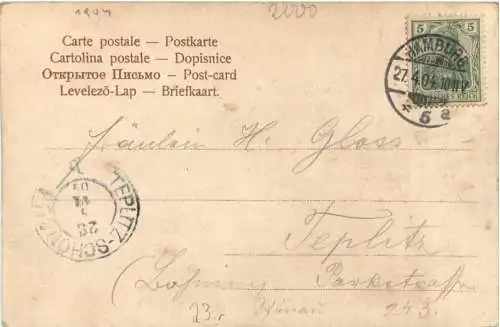 1904
2000
Carte postale — Postkarte
Cartolina postale — Dopisnice
Открытое Письмо — Post-card
Levelező-Lap — Briefkaart.
5 5
HAMBURG
27.4.04.
* 5 a
Fräulein H. Gloss
TEPLITZ-SCHÖNAU
28
Teplitz
(Böhmen) Parkstrasse
23. 243.